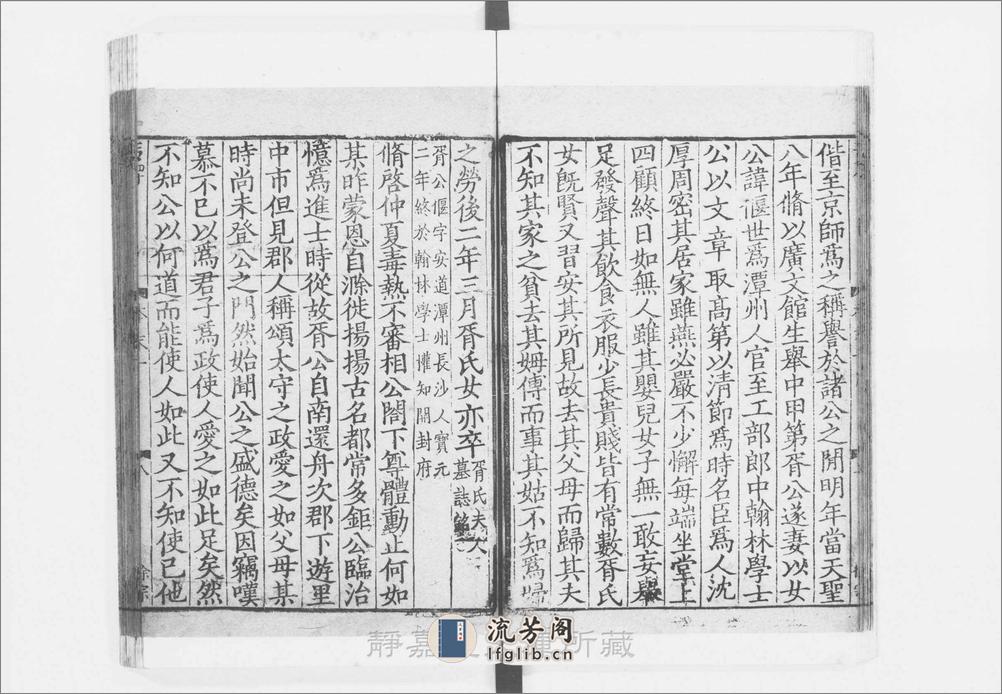 偕至京師爲之稱譽於諸公之閒明年當天聖
八年脩以廣文館生舉中甲第胥公遂妻以女
公諱偃世爲潭州人官至工部郎中翰林學士
公以文章取髙第以清節爲時名臣爲人沈
厚周密其居家雖燕必嚴不少懈每端坐堂上
四顧終日如無人雖其嬰兒女子無一敢妄舉
足發聲其飲食衣服少長貴賤皆有常數胥氏
女旣賢又習安其所見故去其父母而歸其夫
不知其家之貧去其姆傅而事其姑不知爲婦
之勞後二年三月胥氏女亦卒胥氏夫人墓誌銘
胥公偃字安道潭州長沙人寳元
二年終於翰林學士權知開封府
脩啓仲夏毒熱不審相公閤下尊體動止何如
某昨蒙恩自滁徙揚揚古名都常多鉅公臨治
憶爲進士時從故胥公自南還舟次郡下遊里
中市但見郡人稱頌太守之政愛之如父母某
時尚未登公之門然始聞公之盛德矣因竊嘆
慕不已以爲君子爲政使人愛之如此足矣然
不知公以何道而能使人如此又不知使已他
流芳阁
lfglib.cn
靜嘉 所藏